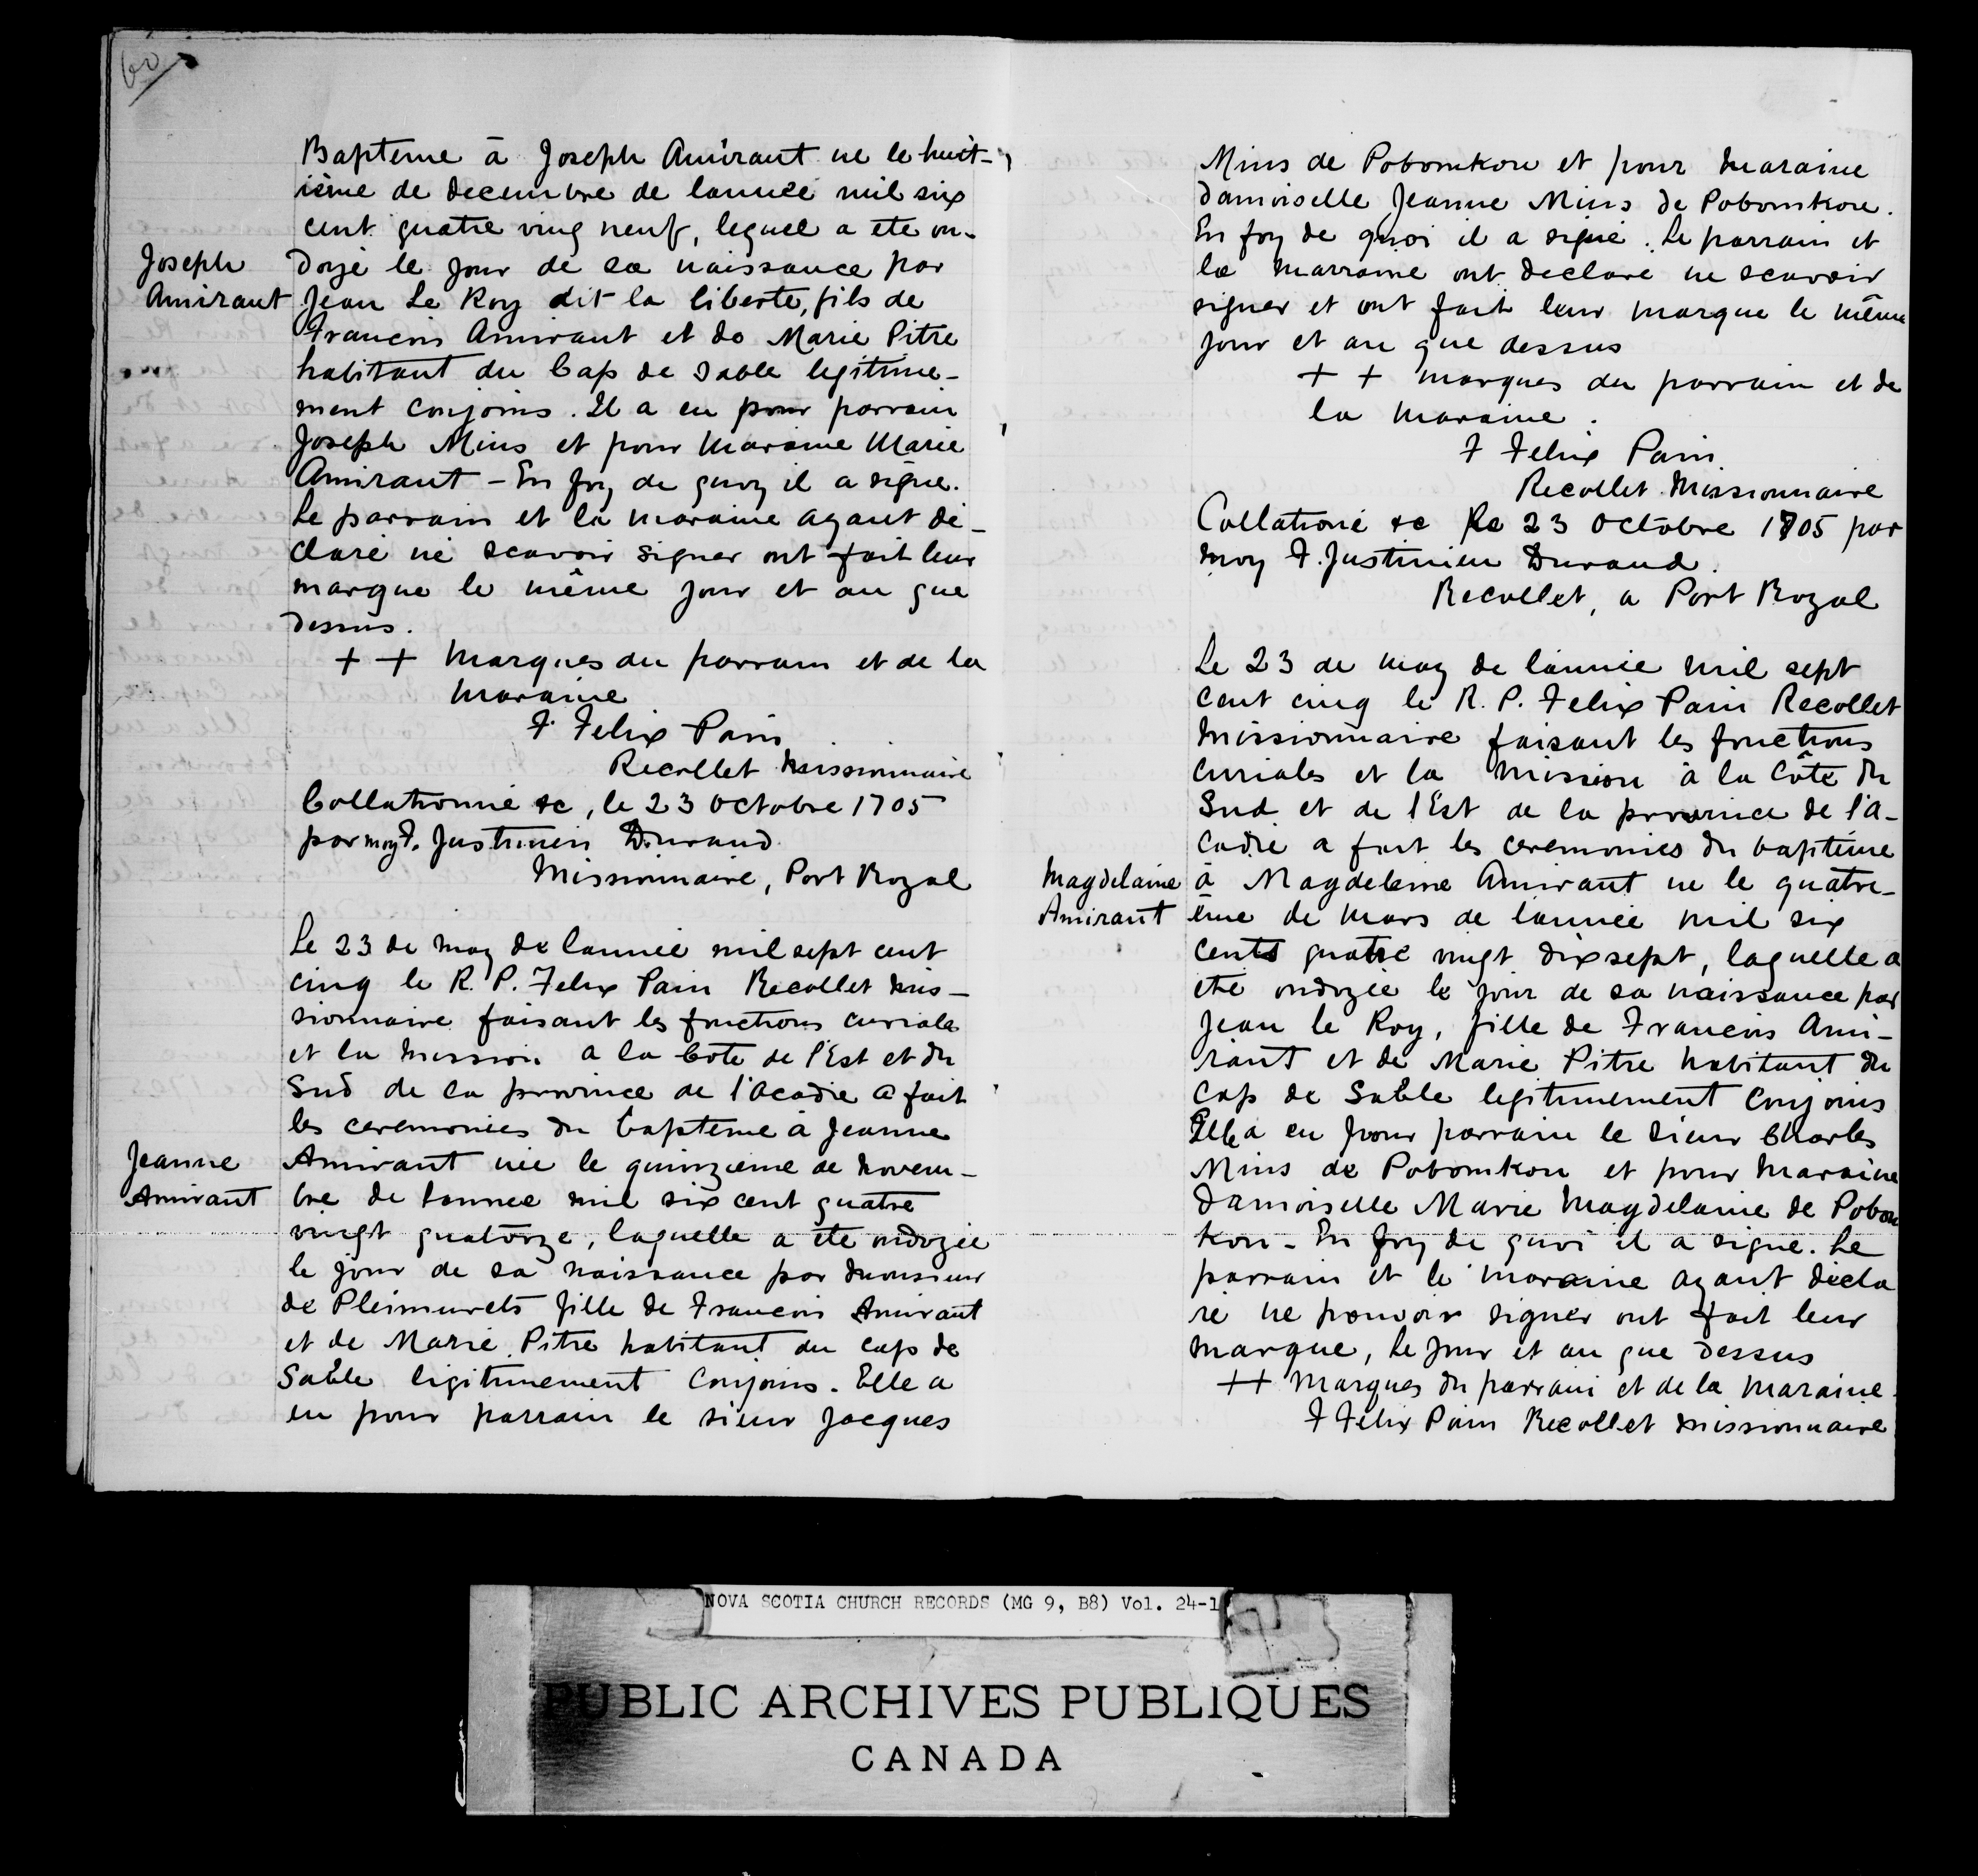 60
Bapteme à Joseph Amirant ne le huit-
ième de decembre de lannee mil six
cent quatre ving neuf, lequel a ete on-
Joseph
Amirant
doyé le jour de sa naissance par
Jean Le Roy dit la liberte, fils de
Francois Amirant et de Marie Pitre
habitant du Cap de Sable legitime-
ment conjoins. Il a eu pour parrain
Joseph Mius et pour maraine Marie
Amirant - En foy de quoy il a signe.
Le parrain et la maraine ayant dé-
claré ne scavoir signer ont fait leur
marque le même jour et an que
dessus.
+ + Marques du parrain et de la
maraine
F. Felix Pain
Recollet Missionnaire
Collationné &c, le 23 Octobre 1705
par moy F. Justinien Durand
Missionnaire, Port Royal
Le 23 de may de lannée mil sept cent
cinq le R. P. Felix Pain Recollet mis-
sionnaire faisant les fonctions curiales
et la mission a la Cote de l'Est et du
Sud de la province de l'acadie a fait
les ceremonies du bapteme à Jeanne
Jeanne
Amirant
Amirant née le quinzieme de novem-
bre de lannee mil six cent quatre
vingt quatorze, laquelle a ete ondoyée
le jour de sa naissance par monsieur
de Pleimurets fille de Francois Amirant
et de Marie Pitre habitant du cap de
Sable ligitimement Conjoins. Elle a
eu pour parrain le sieur Jacques
Mius de Pobomkou et pour maraine
damoiselle Jeanne Mius de Pobomkou.
En foy de quoi il a signé. Le parrain et
la marraine ont declaré ne scavoir
signer et ont fait leur marque le même
jour et an que dessus
+ + marques du parrain et de
la maraine.
F Felix Pain
Recollet Missionnaire
Collationé &c le 23 Octobre 1705 par
moy F. Justinien Durand.
Recollet, a Port Royal
Le 23 de may de l'année mil sept
cent cinq le R. P. Felix Pain Recollet
missionnaire faisant les fonctions
curiales et la mission à la Côte du
Sud et de l'Est de la province de l'A-
cadie a fait les ceremonies du baptème
Magdelaine
Amirant
à Magdeleine Amirant ne le quatre-
ème de Mars de l'année mil six
cents quatre vingt dixsept, laquelle a
eté ondoyée le jour de sa naissance par
Jean le Roy, fille de Francois Ami-
rant et de Marie Pitre habitant du
Cap de Sable legitimement Conjoins
Elle a eu pour parrain le sieur Charles
Mius de Pobomkou et pour maraine
Damoiselle Marie Magdelaine de Pobom
kou - En foy de quoi il a signe. Le
parrain et le maraine ayant décla
ré ne pouvoir signer ont fait leur
marque, le jour et an que dessus
++ Marques du parrain et de la maraine.
F Felix Pain Recollet missionnaire
NOVA SCOTIA CHURCH RECORDS (MG 9, B8) Vol. 24-1
PUBLIC ARCHIVES PUBLIQUES
CANADA